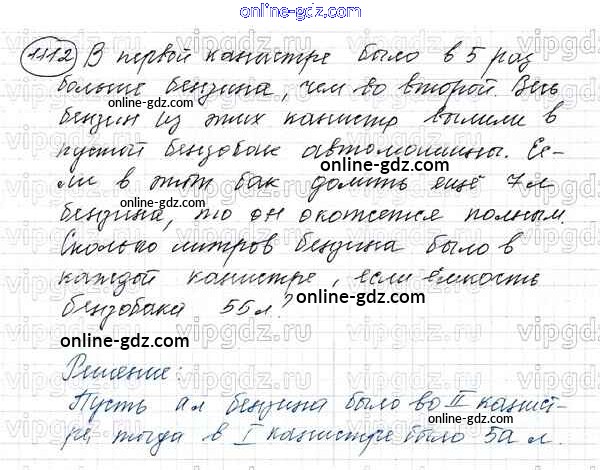 online-gdz.com
1112 В первой канистре было в 5 раз
больше бензина, чем во второй. Весь
online-gdz.com
бензин из этих канистр вылили в
пустой бензобак автомашины. Ес-
online-gdz.com
ли в этот бак долить ещё 7 л
online-gdz.com
бензина, то он окажется полным.
Сколько литров бензина было в
online-gdz.com
каждой канистре, если ёмкость
бензобака 55 л?
online-gdz.com
online-gdz.com
Решение:
Пусть а л бензина было во II канист-
online-gdz.com
ре, тогда в I канистре было 5а л.
online-gdz.com